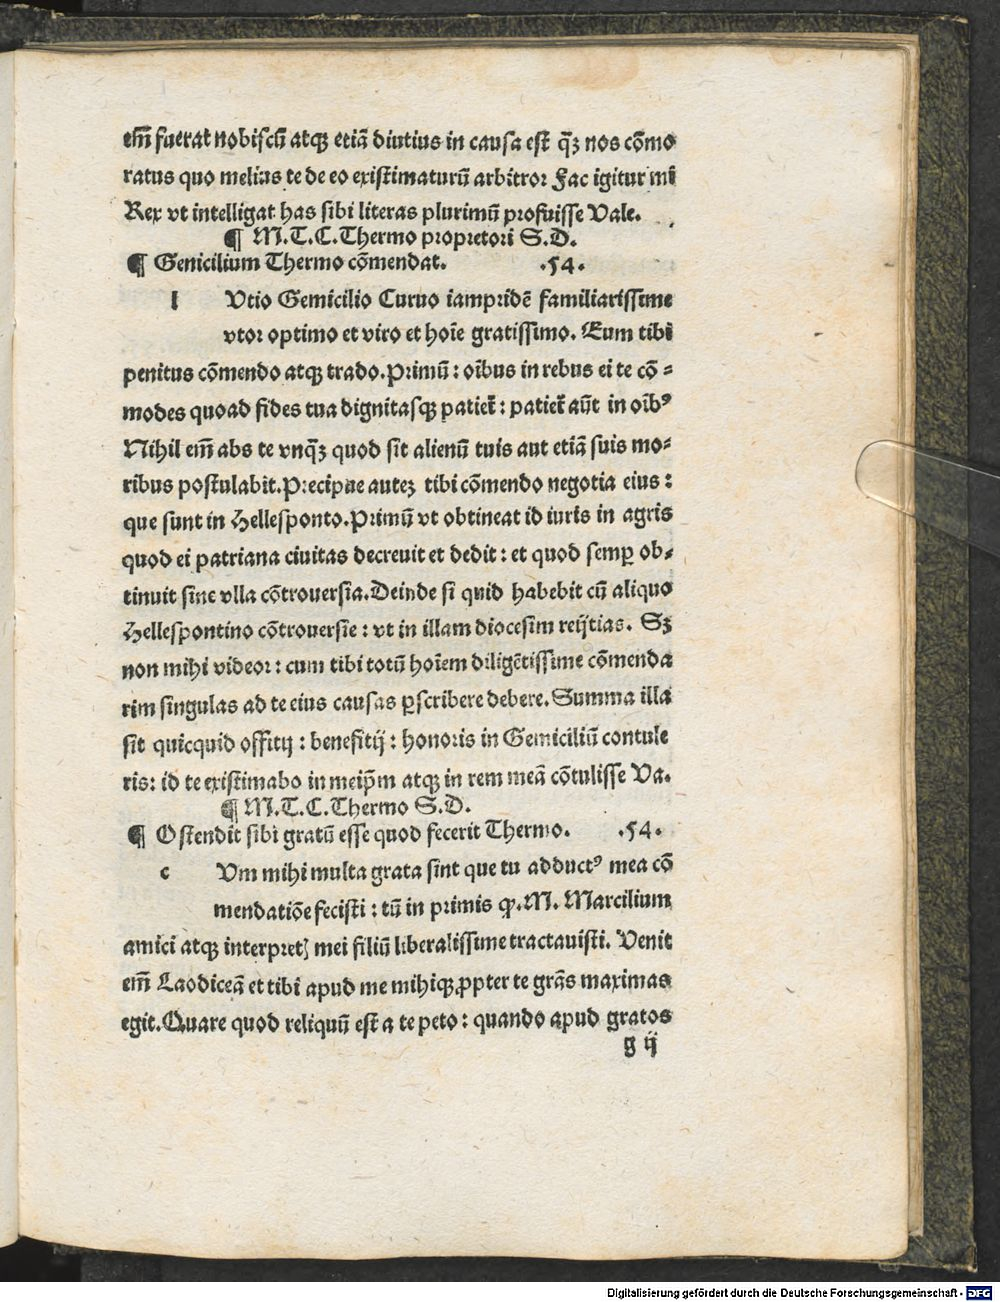 em̄ fuerat nobiscū atqꝫ etiā diutius in causa est qꝫ̄ nos cōmo
ratus quo melius te de eo existimaturū arbitror Fac igitur mī
Rex vt intelligat has sibi literas plurimū profuisse Vale.
¶ M.T.C.Thermo propretori S.D.
¶ Genicilium Thermo cōmendat. .54.
l Vtio Gemicilio Curuo iampridē familiarissime
vtor optimo et viro et hoīe gratissimo. Eum tibi
penitus cōmendo atqꝫ trado.Primū : oībus in rebus ei te cō=
modes quoad fides tua dignitasqꝫ patiet̄ : patiet̄ aūt in oībꝰ
Nihil em̄ abs te vnqꝫ̄ quod sit alienū tuis aut etiā suis mo=
ribus postulabit.Precipue auteꝫ tibi cōmendo negotia eius :
que sunt in Hellesponto.Primū vt obtineat id iuris in agris
quod ei patriana ciuitas decreuit et dedit : et quod semꝑ ob=
tinuit sine vlla cōtrouersia.Deinde si quid habebit cū aliquo
Hellespontino cōtrouersie : vt in illam diocesim reijtias. Sꝫ
non mihi videor : cum tibi totū hoīem diligētissime cōmenda
rim singulas ad te eius causas ꝑscribere debere. Summa illa
sit quicquid offitij : benefitij : honoris in Gemiciliū contule
ris: id te existimabo in meip̄m atqꝫ in rem meā cōtulisse Va.
¶ M.T.C.Thermo S.D.
¶ Ostendit sibi gratū esse quod fecerit Thermo. .54.
c Vm mihi multa grata sint que tu adductꝰ mea cō
mendatiōe fecisti : tū in primis ꝙ.M. Marcilium
amici atqꝫ interpret̄ mei filiū liberalissime tractauisti. Venit
em̄ Laodiceā et tibi apud me mihiqꝫ ꝓpter te grās maximas
egit.Quare quod reliquū est a te peto : quando apud gratos
g ij
Digitalisierung gefördert durch die Deutsche Forschungsgemeinschaft - DFG